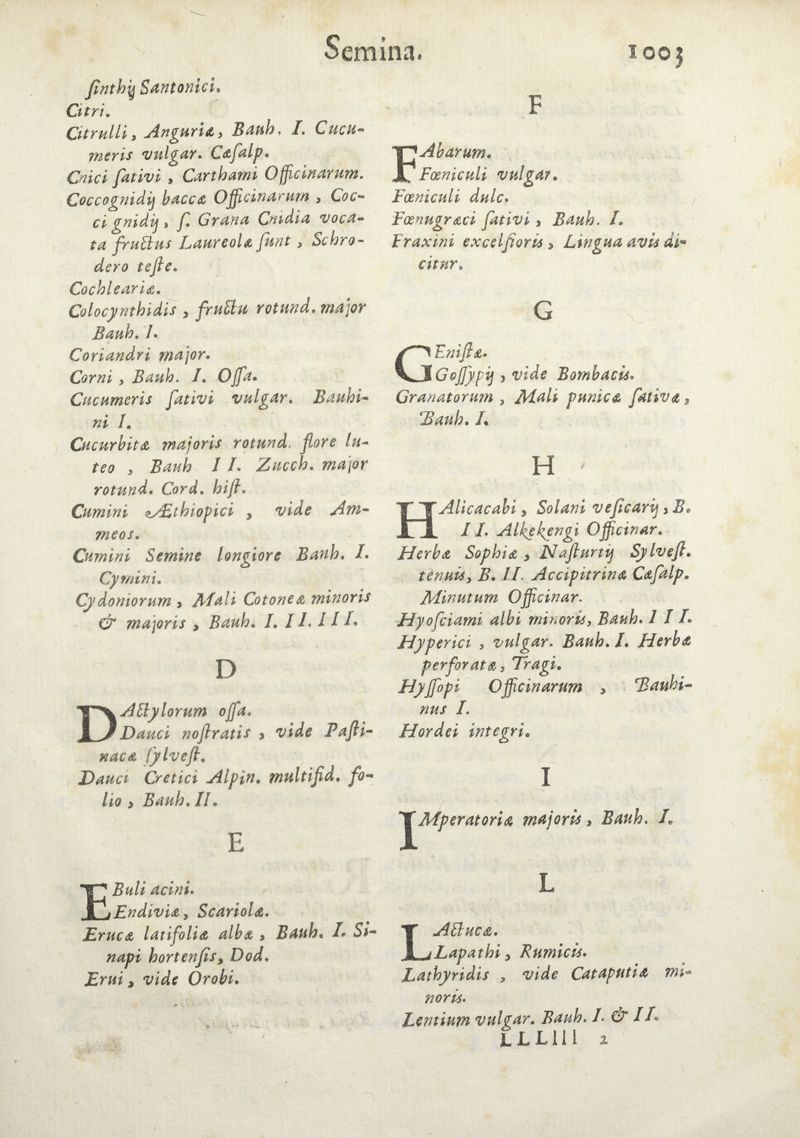 Semina. 1003
ſinthij Santonici.
Citri.
Citrulli, Anguriæ, Bauh. I. Cucu-
meris vulgar. Cæſalp.
Cnici ſativi, Carthami Officinarum.
Coccognidij baccæ Officinarum, Coc-
ci gnidij, ſ. Grana Cnidia voca-
ta fructus Laureolæ ſunt, Schro-
dero teſte.
Cochleariæ.
Colocynthidis, fructu rotund. major
Bauh. I.
Coriandri major.
Corni, Bauh. I. Oſſa.
Cucumeris ſativi vulgar. Bauhi-
ni I.
Cucurbitæ majoris rotund. flore lu-
teo, Bauh II. Zucch. major
rotund. Cord. hiſt.
Cumini Æthiopici, vide Am-
meos.
Cumini Semine longiore Bauh. I.
Cymini.
Cydoniorum, Mali Cotoneæ minoris
& majoris, Bauh. I. II. III.
D
DActylorum oſſa.
Dauci noſtratis, vide Paſti-
nacæ ſylveſt.
Dauci Cretici Alpin. multifid. fo-
lio, Bauh. II.
E
EBuli acini.
Endiviæ, Scariolæ.
Erucæ latifoliæ albæ, Bauh. I. Si-
napi hortenſis, Dod.
Erui, vide Orobi.
F
FAbarum.
Fœniculi vulgar.
Fœniculi dulc.
Fœnugræci ſativi, Bauh. I.
Fraxini excelſioris, Lingua avis di-
citur.
G
GEniſtæ.
Goſſypij, vide Bombacis.
Granatorum, Mali punicæ ſativæ,
Bauh. I.
H
HAlicacabi, Solani veſicarij, B.
II. Alkekengi Officinar.
Herbæ Sophiæ, Naſturtij Sylveſt.
tenuis, B. II. Accipitrinæ Cæſalp.
Minutum Officinar.
Hyoſciami albi minoris, Bauh. III.
Hyperici, vulgar. Bauh. I. Herbæ
perforatæ, Tragi.
Hyſſopi Officinarum, Bauhi-
nus I.
Hordei integri.
I
IMperatoriæ majoris, Bauh. I.
L
LActucæ.
Lapathi, Rumicis.
Lathyridis, vide Cataputiæ mi-
noris.
Lentium vulgar. Bauh. I. & II.
LLLlll 2